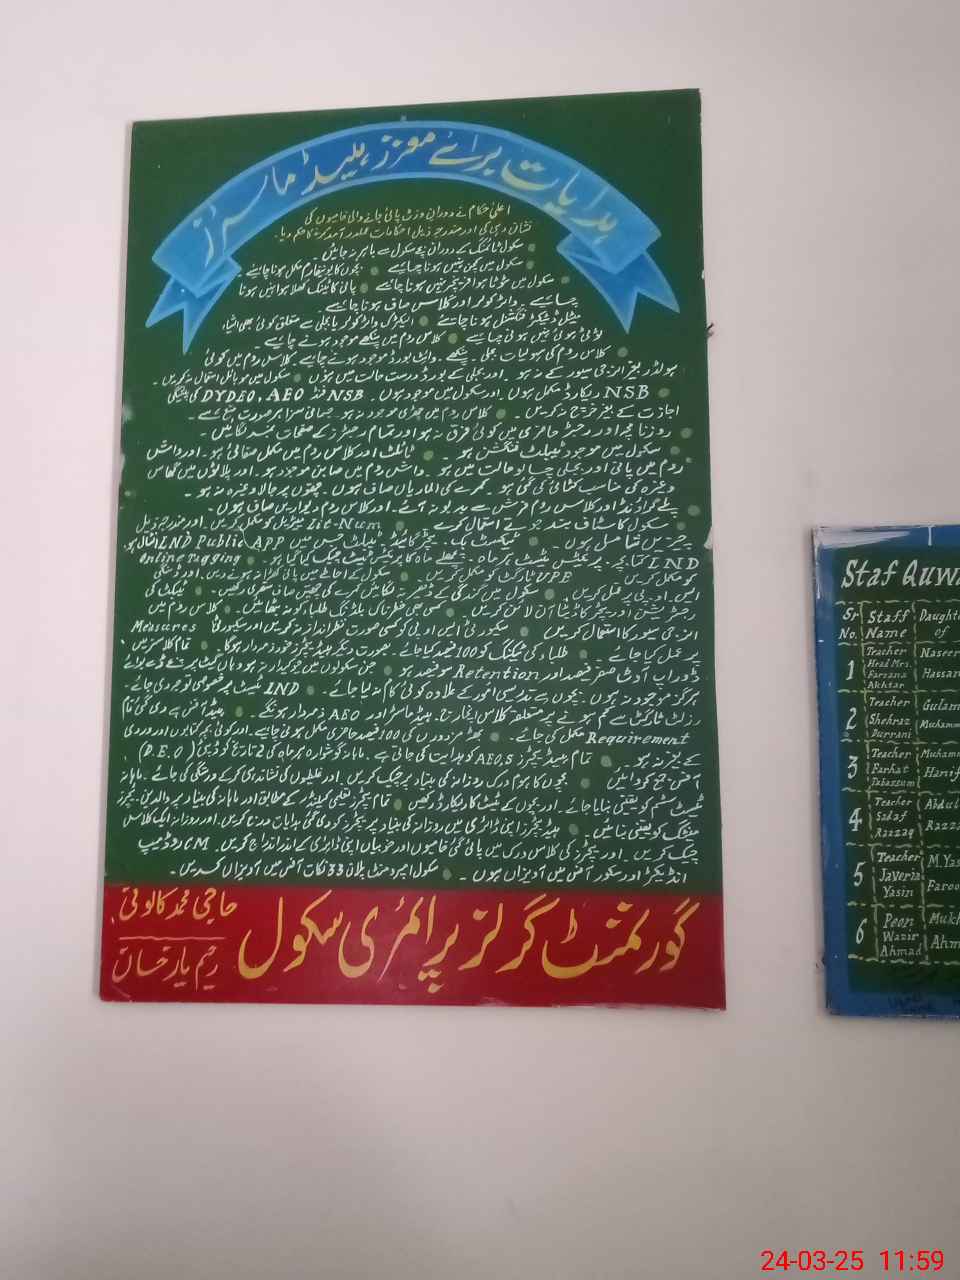 ہدایات برائے معزز ہیڈ ماسٹرز
اعلیٰ حکام نے دوران وزٹ پائی جانے والی خامیوں کی
نشاندہی کی اور مندرجہ ذیل احکامات عملدرآمد کرنے کا حکم دیا۔
سکول ٹائمنگ کے دوران بچے سکول سے باہر نہ جائیں۔
سکول میں کچن نہیں ہونا چاہیے ● بچوں کا یونیفارم مکمل ہونا چاہیئے
سکول میں ٹوٹا ہوا فرنیچر نہیں ہونا چاہیے ● پانی کا ٹینک کھلا ہوا نہیں ہونا
چاہیے۔ واٹر کولر اور گلاس صاف ہونا چاہیے۔
میٹل ڈیٹیکٹر فنکشنل ہونا چاہیے ● الیکٹرک واٹر کولر یا بجلی سے متعلق کوئی بھی اشیاء
ٹوٹی ہوئی نہیں ہونی چاہیے ● کلاس روم میں پنکھے موجود ہونے چاہیے۔
کلاس روم کی سہولیات بجلی۔ پنکھے۔ وائیٹ بورڈ موجود ہونے چاہیے۔ کلاس روم میں کوئی
ہولڈر بغیر انرجی سیور کے نہ ہو۔ اور بجلی کے بورڈ درست حالت میں ہوں ● سکول میں موبائل استعمال نہ کریں۔
NSB ریکارڈ مکمل ہوں۔ اور سکول میں موجود ہوں۔ NSB فنڈ DYDEO, AEO کی پیشگی
اجازت کے بغیر خرچ نہ کریں۔ ● کلاس روم میں چھڑی موجود نہ ہو۔ جسمانی سزا ہر صورت منع ہے۔
روزنامچہ اور رجسٹر حاضری میں کوئی فرق نہ ہو اور تمام رجسٹرز کے صفحات نمبر لگائیں۔
سکول میں موجود ٹیبلیٹ فنگشن ہو۔ ● ٹائلٹ اور کلاس روم میں مکمل صفائی ہو۔ اور واش
روم میں پانی اور بجلی چالو حالت میں ہو۔ واش روم میں صابن موجود ہو۔ اور پلاٹوں میں گھاس
وغیرہ کی مناسب کٹائی کی گئی ہو۔ کمرے کی الماریاں صاف ہوں۔ چھتوں پر جالا وغیرہ نہ ہو۔
پلے گراؤنڈ اور کلاس روم فرش سے بدبو نہ آئے۔ اور کلاس روم دیواریں صاف ہوں۔
سکول کا سٹاف بند جوتے استعمال کرے ● Lit-Num میٹریل کو مکمل کریں۔ اور مندرجہ ذیل
چیزیں شامل ہوں۔ ● ٹیکسٹ بک۔ ٹیچر گائیڈ ٹیبلیٹ جس میں LND Public APP انسٹال ہو۔
LND کتابچہ۔ پریکٹس ٹیسٹ ہر ماہ۔ پچھلے ماہ کا پریکٹس ٹیسٹ چیک کیا گیا ہو۔ Online Tagging
کو مکمل کریں UPE ٹارگٹ کو مکمل کریں۔ ● سکول کے احاطے میں پانی کھڑا نہ ہونے دیں۔ اور ڈینگی
ایس او پی پر عمل کریں۔ سکول میں گندگی کے ڈھیر نہ لگائیں کمرے کی چھتیں صاف ستھری رکھیں۔ ● ٹیبلٹ کی
رجسٹریشن اور ٹیچرز کا ڈیٹا آن لائن کریں۔ ● کسی بھی خطرناک بلڈنگ طلباء کو نہ بٹھائیں۔ ● کلاس روم میں
انرجی سیور کا استعمال کریں۔ ● سیکورٹی ایس او پی کو کسی صورت نظر انداز نہ کریں اور سیکورٹی Measures
پر عمل کیا جائے۔ ● طلباء کی ٹیگنگ کو 100 فیصد کیا جائے۔ بصورت دیگر ہیڈ ٹیچرز خود ذمہ دار ہوگا۔ ● تمام کلاسز میں
ڈور اپ آؤٹ صفر فیصد اور Retention سو فیصد ہو ● جن سکولوں میں چوکیدار نہ ہو وہاں گیٹ پر بچے
ہرگز موجود نہ ہوں۔ بچوں سے تدریسی امور کے علاوہ کوئی کام نہ لیا جائے۔ ● LND ٹیسٹ پر خصوصی توجہ دی جائے۔
رزلٹ ٹارگٹ سے کم ہونے پر متعلقہ کلاس انچارج۔ ہیڈ ماسٹر اور AEO ذمہ دار ہونگے۔ ● ہیڈ آفس سے دی گئی تمام
Requirement مکمل کی جائے۔ ● بھٹہ مزدوروں کی 100 فیصد حاضری مکمل ہونی چاہیے۔ اور کوئی بچہ کتابوں اور وردی
کے بغیر نہ ہو۔ ● تمام ہیڈ ٹیچرز AEO,S کو ہدایت کی جاتی ہے۔ ماہانہ گوشوارہ ہر ماہ کی 2 تاریخ کو ڈپٹی (D.E.O)
آفس جمع کروائیں ● بچوں کا ہوم ورک روزانہ کی بنیاد پر چیک کریں۔ اور غلطیوں کی نشاندہی کر کے درستگی کی جائے۔ ماہانہ
ٹیسٹ سسٹم کو یقینی بنایا جائے۔ اور بچوں کے ٹیسٹ کا ریکارڈ رکھیں ● تمام ٹیچرز تعلیمی کیلینڈر کے مطابق اور ماہانہ کی بنیاد پر والدین۔ ٹیچرز
میٹنگ کو یقینی بنائیں۔ ● ہیڈ ٹیچرز اپنی ڈائری میں روزانہ کی بنیاد پر ٹیچرز کو دی گئی ہدایات درج کریں۔ اور روزانہ ایک کلاس
چیک کریں۔ اور ٹیچرز کی کلاس ورک میں پائی گئی خامیوں اور خوبیاں اپنی ڈائری کے اندر اندراج کریں۔ CM روڈ میپ
انڈیکیٹر اور سکور آفس میں آویزاں ہوں۔ ● سکول امپرومنٹ پلان 33 نکات آفس میں آویزاں کریں۔
گورنمنٹ گرلز پرائمری سکول
حاجی محمد کالونی
رحیم یار خان
Staf Quwa
Sr No. Staff Name Daughte of
1 Teacher Head Mrs. Farzana Akhtar Naseer Hassan
2 Teacher Shehraz Durrani Gulam Muhamm
3 Teacher Farhat Tabassum Muham Hanif
4 Teacher Sadaf Razzaq Abdul Razza
5 Teacher Javeria Yasin M.Yas Faroo
6 Peon Wazir Ahmad Mukh Ahm
24-03-25 11:59